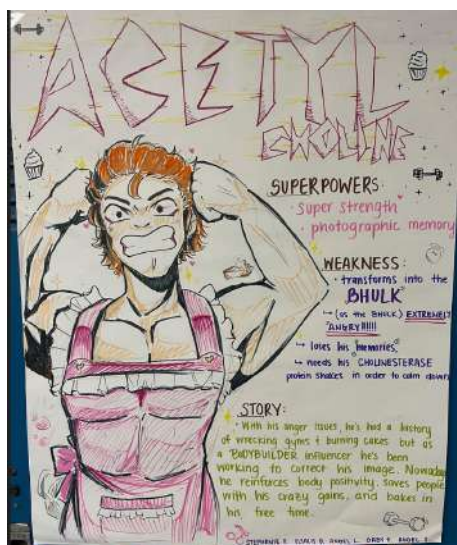 ACETYL
CHOLINE
SUPERPOWERS:
· super strength
· photographic memory
WEAKNESS:
· transforms into the
"BHULK"
↳ (as the BHULK) EXTREMELY
ANGRY!!!!!
↳ loses his memories,
↳ needs his CHOLINESTERASE
protein shakes in order to calm down
STORY:
· With his anger issues, he's had a history
of wrecking gyms + burning cakes but as
a BODYBUILDER influencer he's been
working to correct his image. Nowadays
he reinforces body positivity, saves people
with his crazy gains, and bakes in
his free time.
STEPHANIE ANGEL L. ANGEL